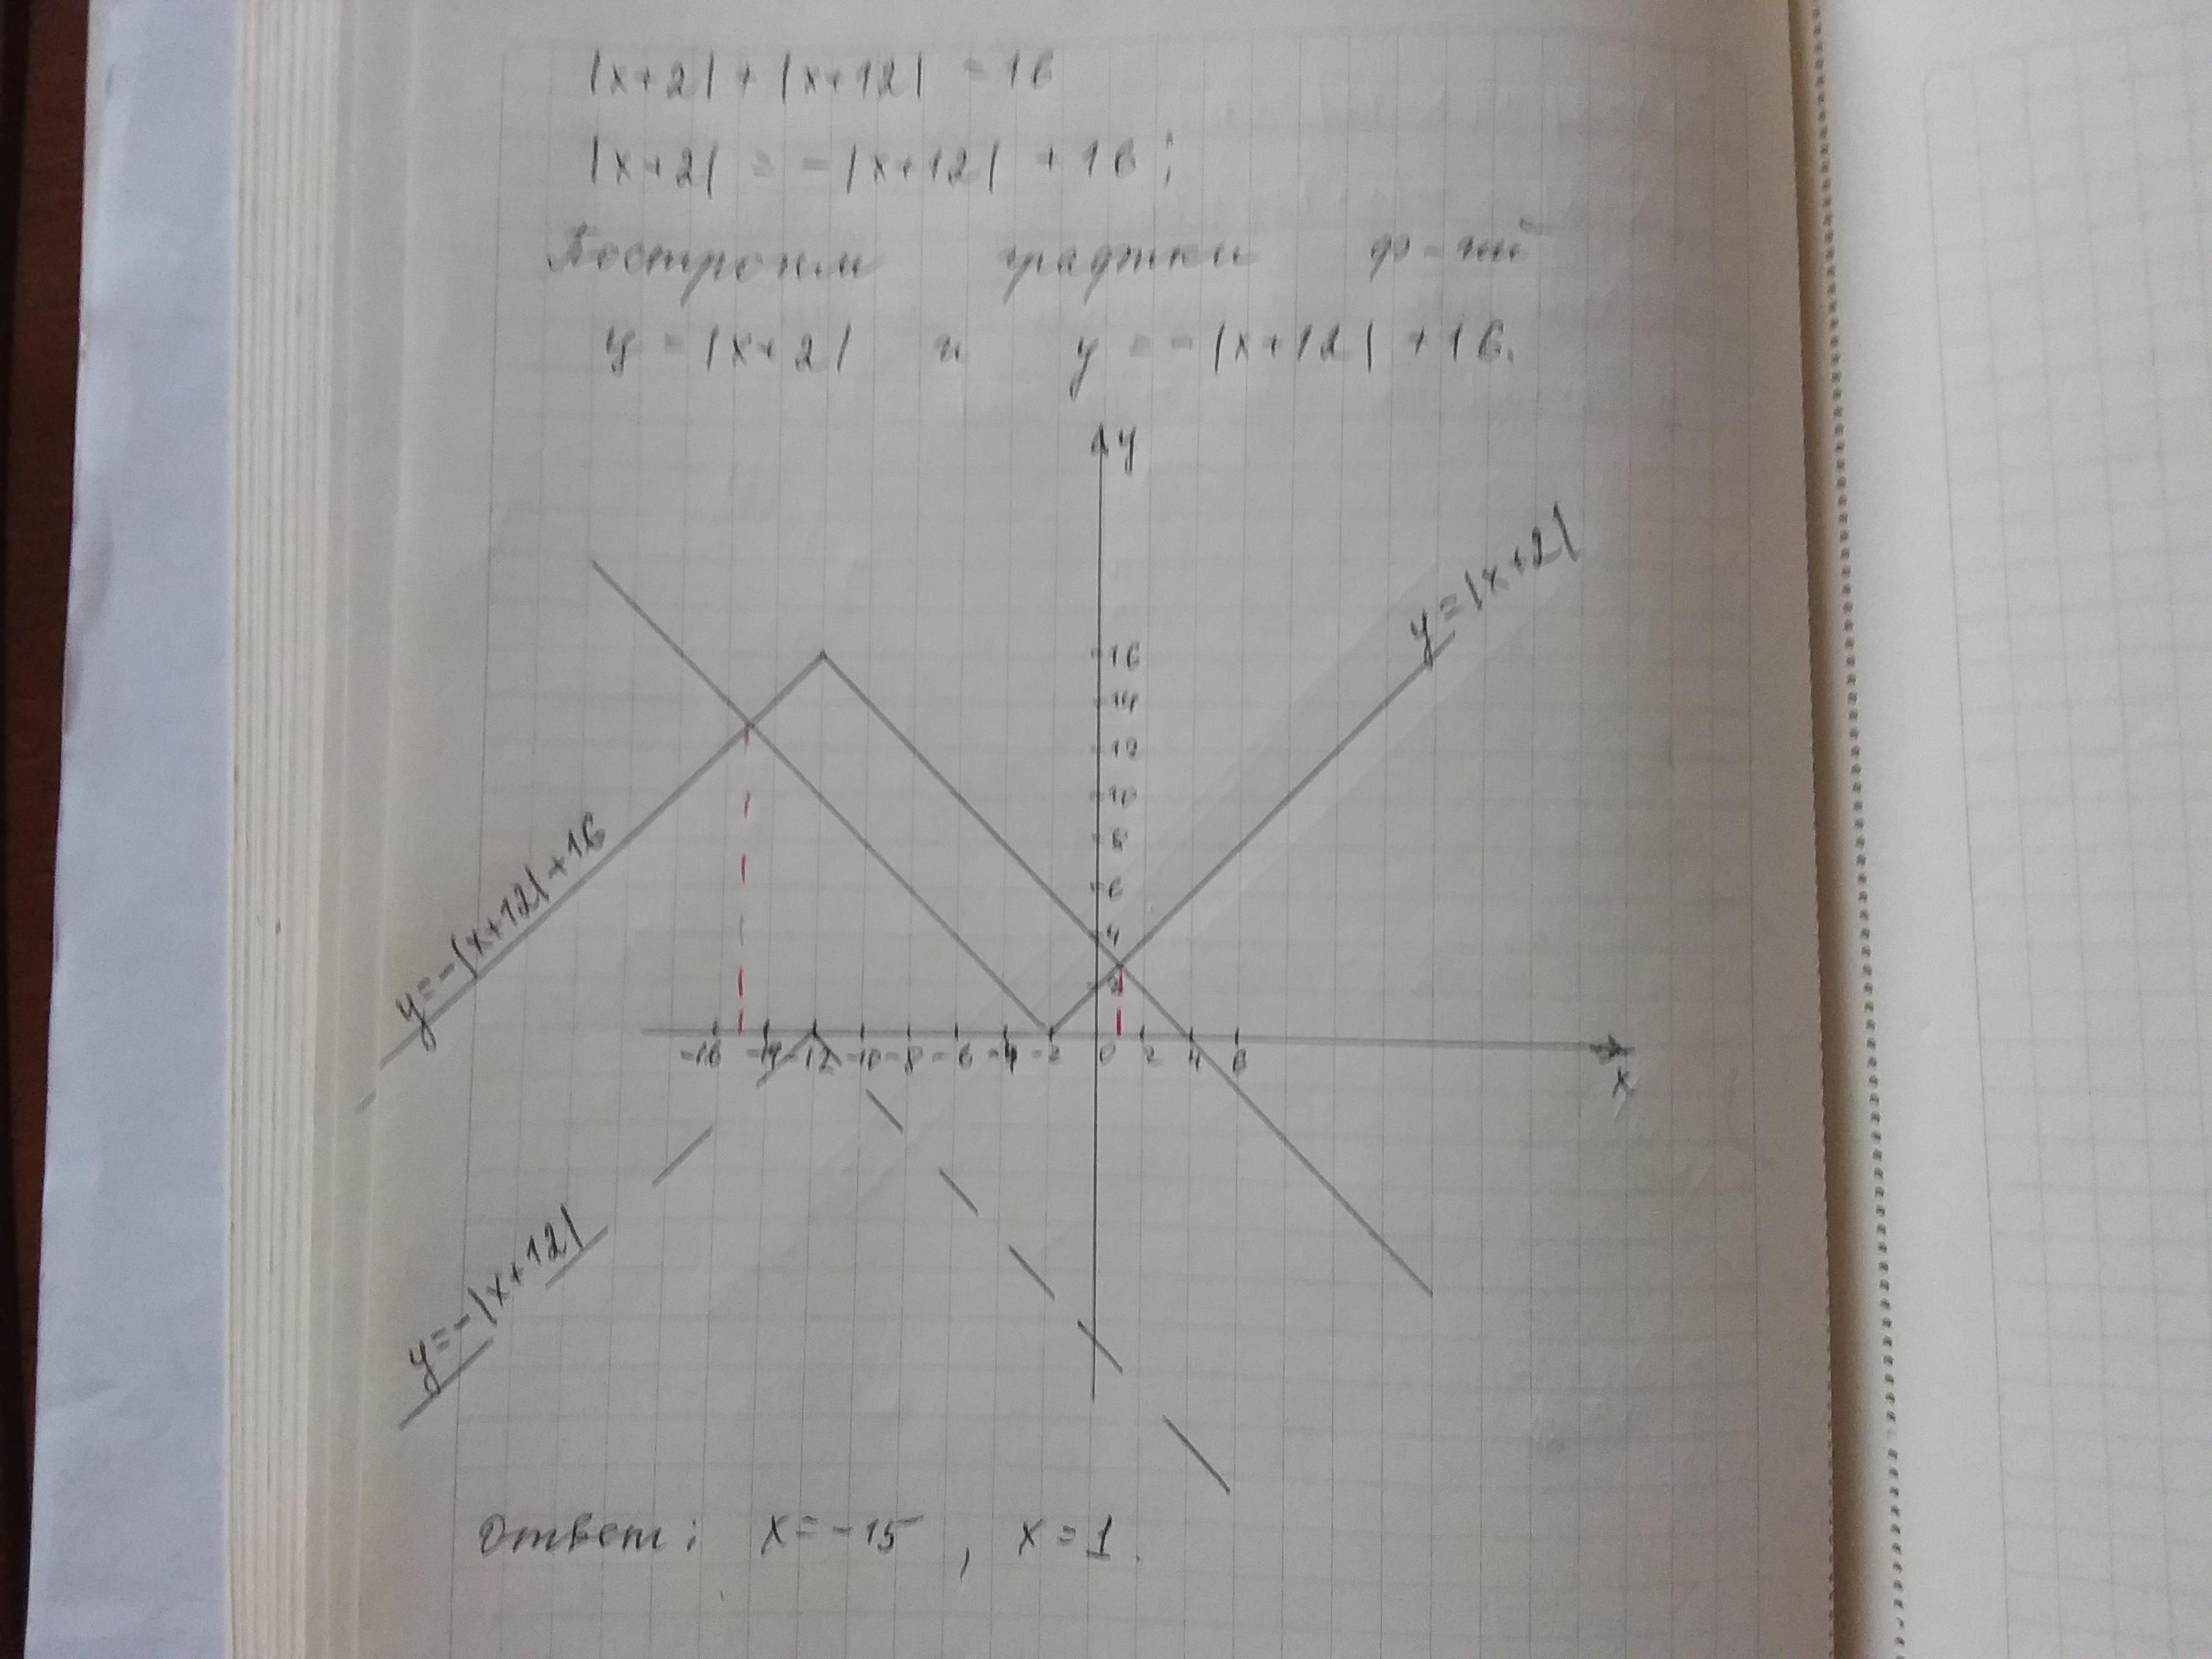 |x+2| + |x+12| = 16
|x+2| = -|x+12| + 16;
Построим графики ф-ций
y = |x+2| и y = -|x+12| + 16.
y
y=|x+2|
16
14
12
10
8
6
4
2
y=-|x+12|+16
-16 -14 -12 -10 -8 -6 -4 -2 0 2 4 6
x
y=-|x+12|
Ответ: x=-15, x=1.